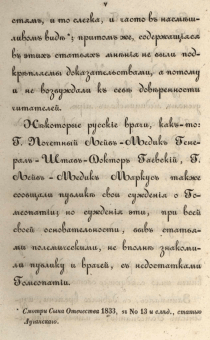 V
стямъ, и то слегка, и часто въ насмѣш-
ливомъ видѣ*; притомъ же, содержащіяся
въ этихъ статьяхъ мнѣнія не были под-
крѣпляемы доказательствами, а потому
и не возуждали къ себѣ довѣренности
читателей.
Нѣкоторые русскіе врачи, какъ-то:
Г. Почетный Лейбъ-Медикъ Гене-
ралъ-Штабъ-Докторъ Гаевскій, Г.
Лейбъ-Медикъ Маркусъ также
сообщали публикѣ свои сужденія о Го-
меопатіи; но сужденія эти, при всей
своей основательности, бывъ статья-
ми полемическими, не вполнѣ знакоми-
ли публику и врачей, съ недостатками
Гомеопатіи.
* Смотри Сынъ Отечества 1833, № No 13 и слѣд., статью